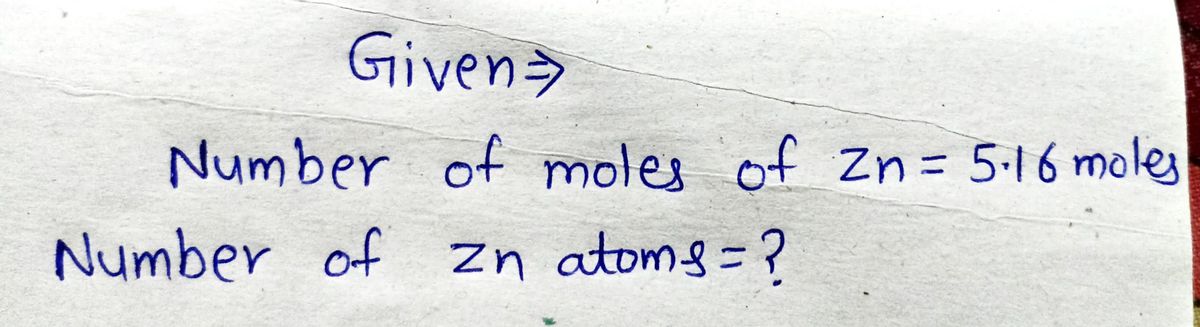 Given⇒
Number of moles of Zn = 5.16 moles
Number of Zn atoms = ?